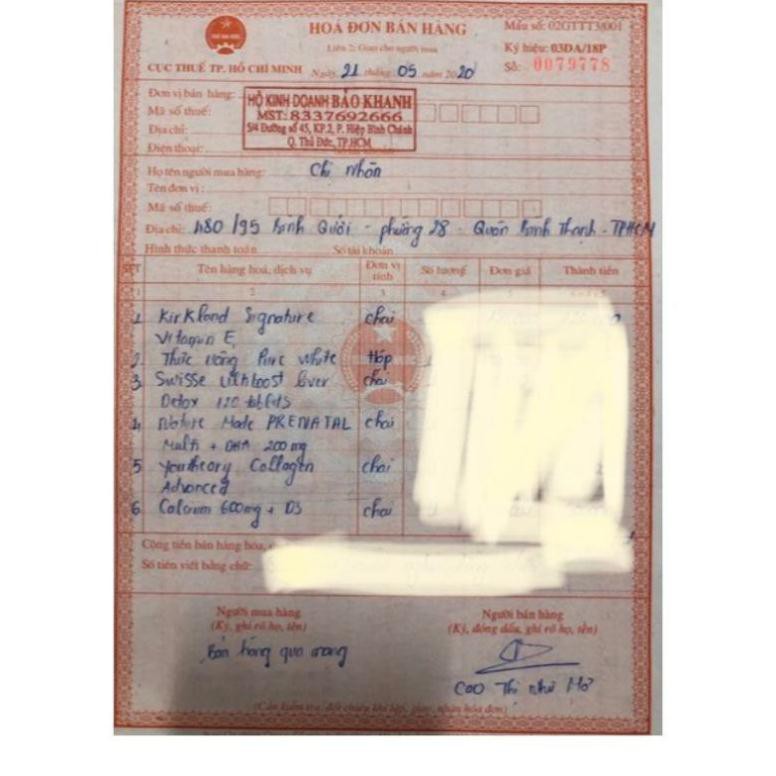 HOÁ ĐƠN BÁN HÀNG
Mẫu số: 02GTTT3/001
Liên 2: Giao cho người mua
Ký hiệu: 03DA/18P
CỤC THUẾ TP. HỒ CHÍ MINH
Ngày 21 tháng 05 năm 2020
Số: 0079778
Đơn vị bán hàng:
HỘ KINH DOANH BẢO KHANH
Mã số thuế:
MST: 8337692666
5/4 Đường số 45, KP.2, P. Hiệp Bình Chánh
Địa chỉ:
Q. Thủ Đức, TP.HCM
Điện thoại:
Họ tên người mua hàng: Chị Nhàn
Tên đơn vị:
Mã số thuế:
Địa chỉ: 480/95 Bình Quới - phường 28 - Quận Bình Thạnh - TPHCM
Hình thức thanh toán Số tài khoản
STT Tên hàng hoá, dịch vụ Đơn vị tính Số lượng Đơn giá Thành tiền
1 2 3 4 5
1 Kirkland Signature chai
Vitamin E
2. Thức uống Pure White Hộp
3 Swisse Ultiboost liver chai
Detox 120 tablets
4 Nature Made PRENATAL chai
Multi + DHA 200mg
5 Youtheory Collagen chai
Advanced
6 Calcium 600mg + D3 chai
Cộng tiền bán hàng hóa,
Số tiền viết bằng chữ:
Người mua hàng Người bán hàng
(Ký, ghi rõ họ, tên) (Ký, đóng dấu, ghi rõ họ, tên)
Bán hàng qua mạng
Cao Thị Như
(Cần kiểm tra, đối chiếu khi lập, giao, nhận hóa đơn)